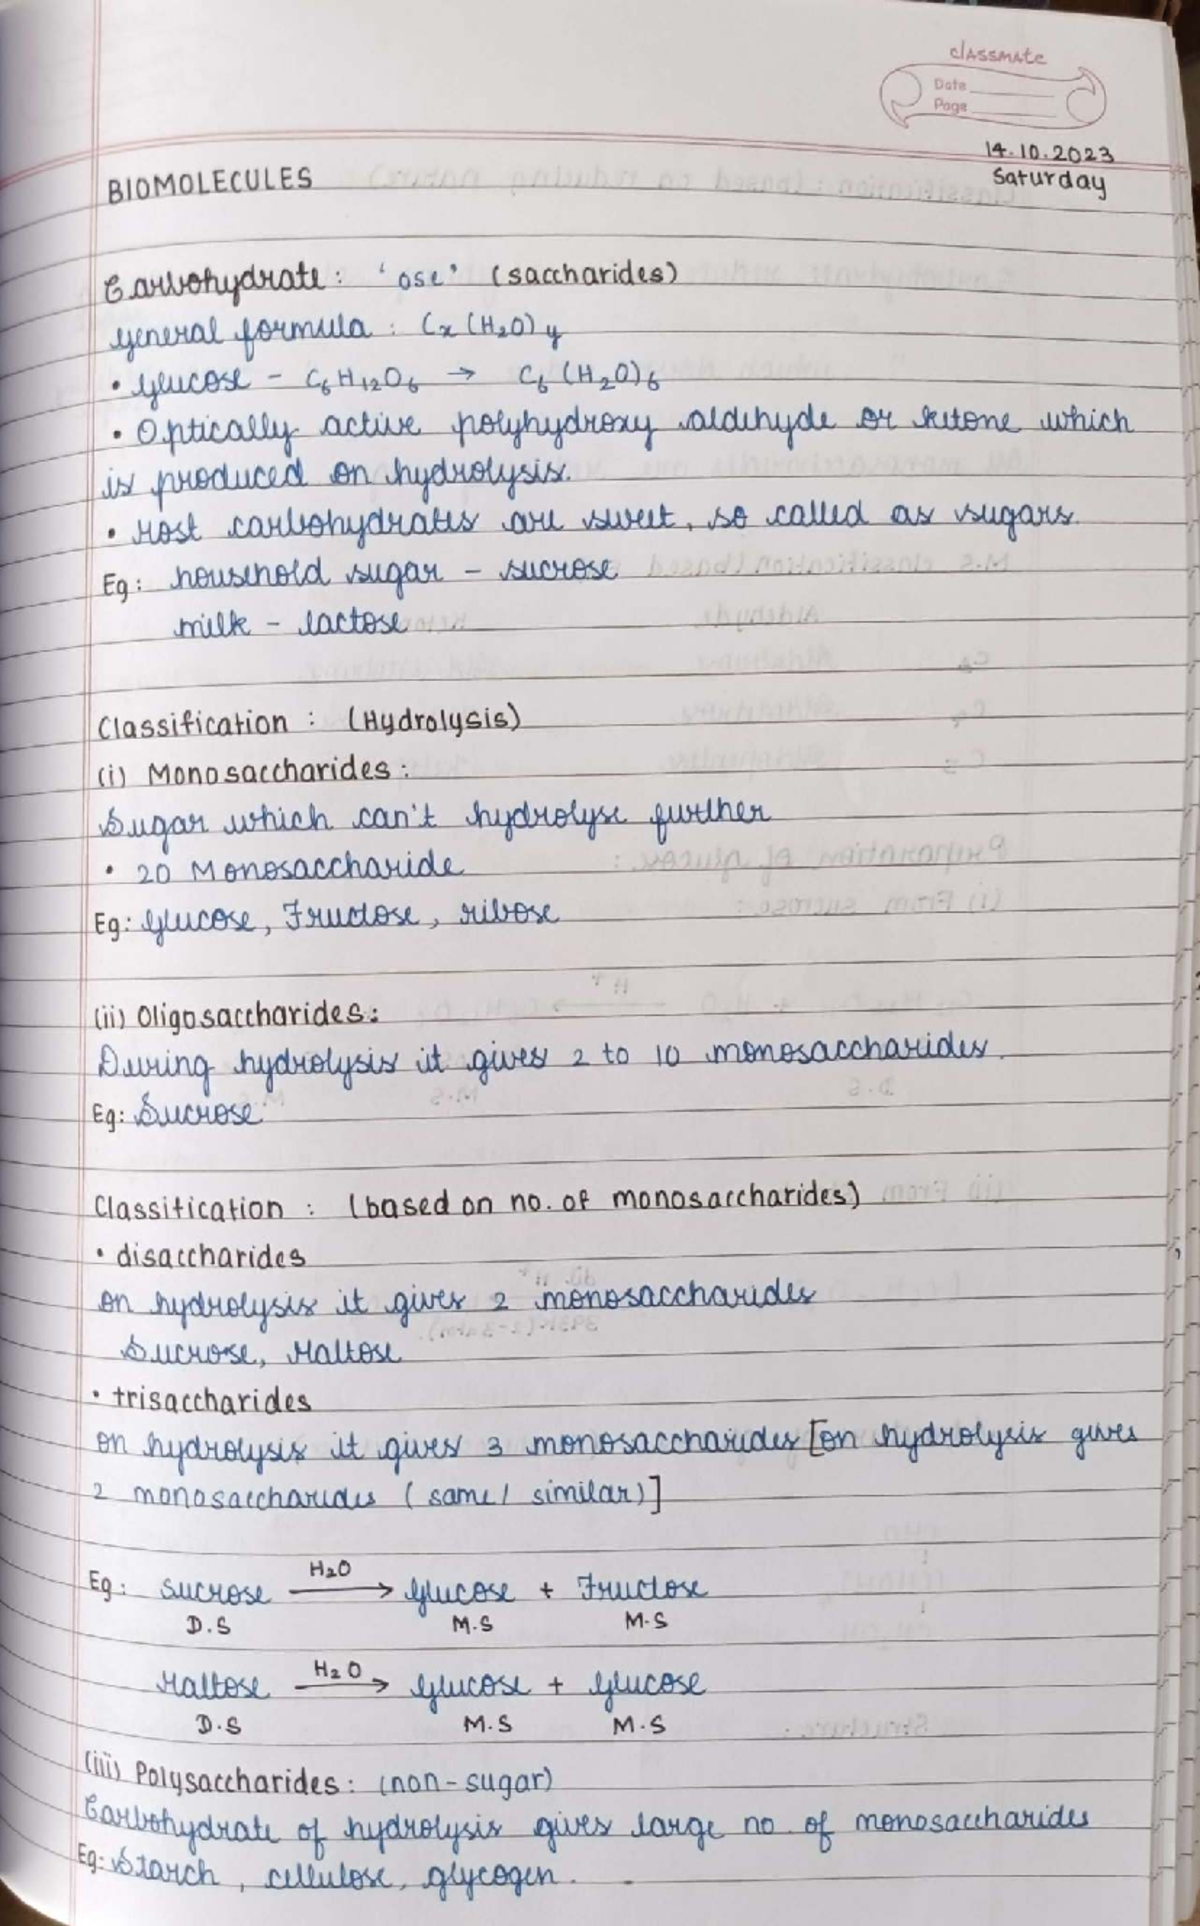 classmate
Date
Page
14.10.2023
Saturday
BIOMOLECULES
Carbohydrate: 'ose' (saccharides)
General formula : Cx (H2O) y
• Glucose - C6H12O6 → C6 (H2O)6
• Optically active polyhydroxy aldehyde or ketone which
is produced on hydrolysis.
• Most carbohydrates are sweet, so called as sugars.
Eg: household sugar - sucrose
milk - lactose
Classification : (Hydrolysis)
(i) Monosaccharides:
Sugar which can't hydrolyse further
• 20 Monosaccharide
Eg: Glucose, Fructose, ribose
(ii) Oligosaccharides:
During hydrolysis it gives 2 to 10 monosaccharides.
Eg: Sucrose
Classification : (based on no. of monosaccharides)
• disaccharides
on hydrolysis it gives 2 monosaccharides
Sucrose, Maltose
• trisaccharides
on hydrolysis it gives 3 monosaccharides [on hydrolysis gives
2 monosaccharides (same/ similar)]
H2O
Eg: Sucrose → Glucose + Fructose
D.S M.S M.S
H2O
Maltose → Glucose + Glucose
D.S M.S M.S
(iii) Polysaccharides: (non-sugar)
Carbohydrate of hydrolysis gives large no. of monosaccharides
Eg: Starch, cellulose, glycogen.